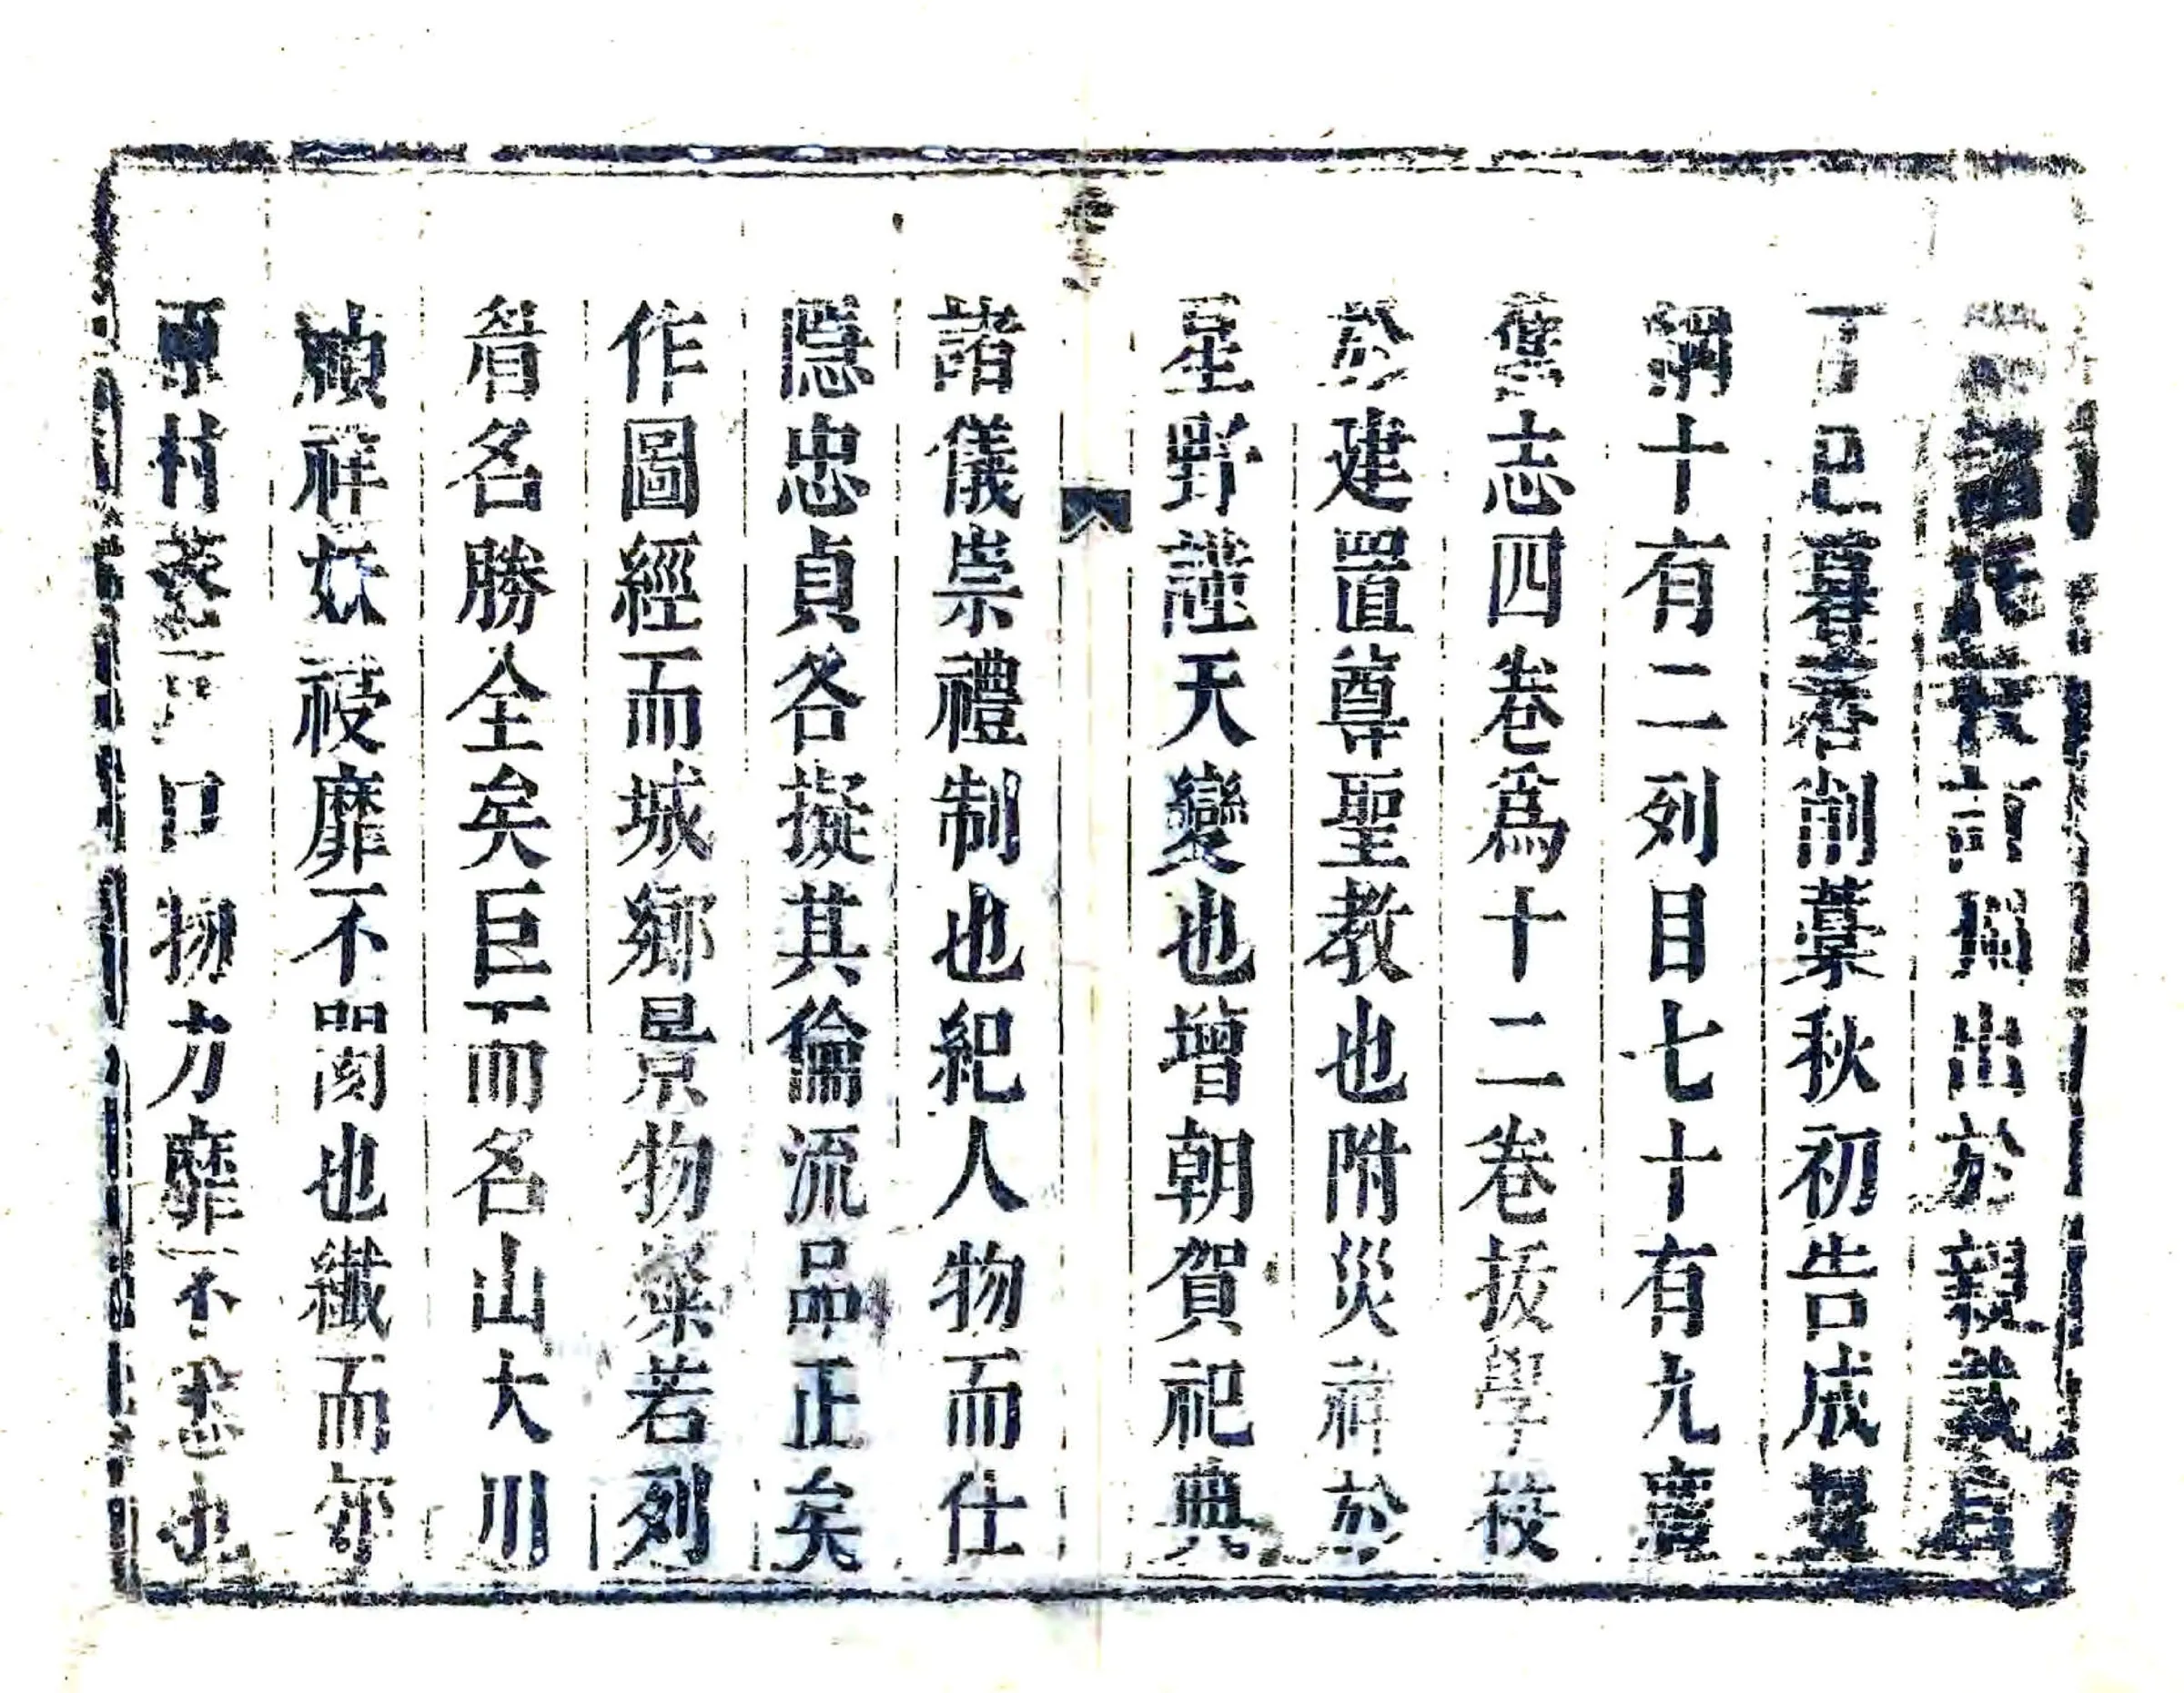 諸氏較訂獨出於親裁自
丁巳暮春削藁秋初告成
綱十有二列目七十有九廣
舊志四卷爲十二卷拔學校
於建置尊聖教也附災祥於
星野謹天變也增朝賀祀典
諸儀崇禮制也紀人物而仕
隱忠貞各擬其倫流品正矣
作圖經而城鄉景物粲若列
眉名勝全矣巨而名山大川
禎祥妖祲靡不闊也纖而
村落口物方靡不悉也